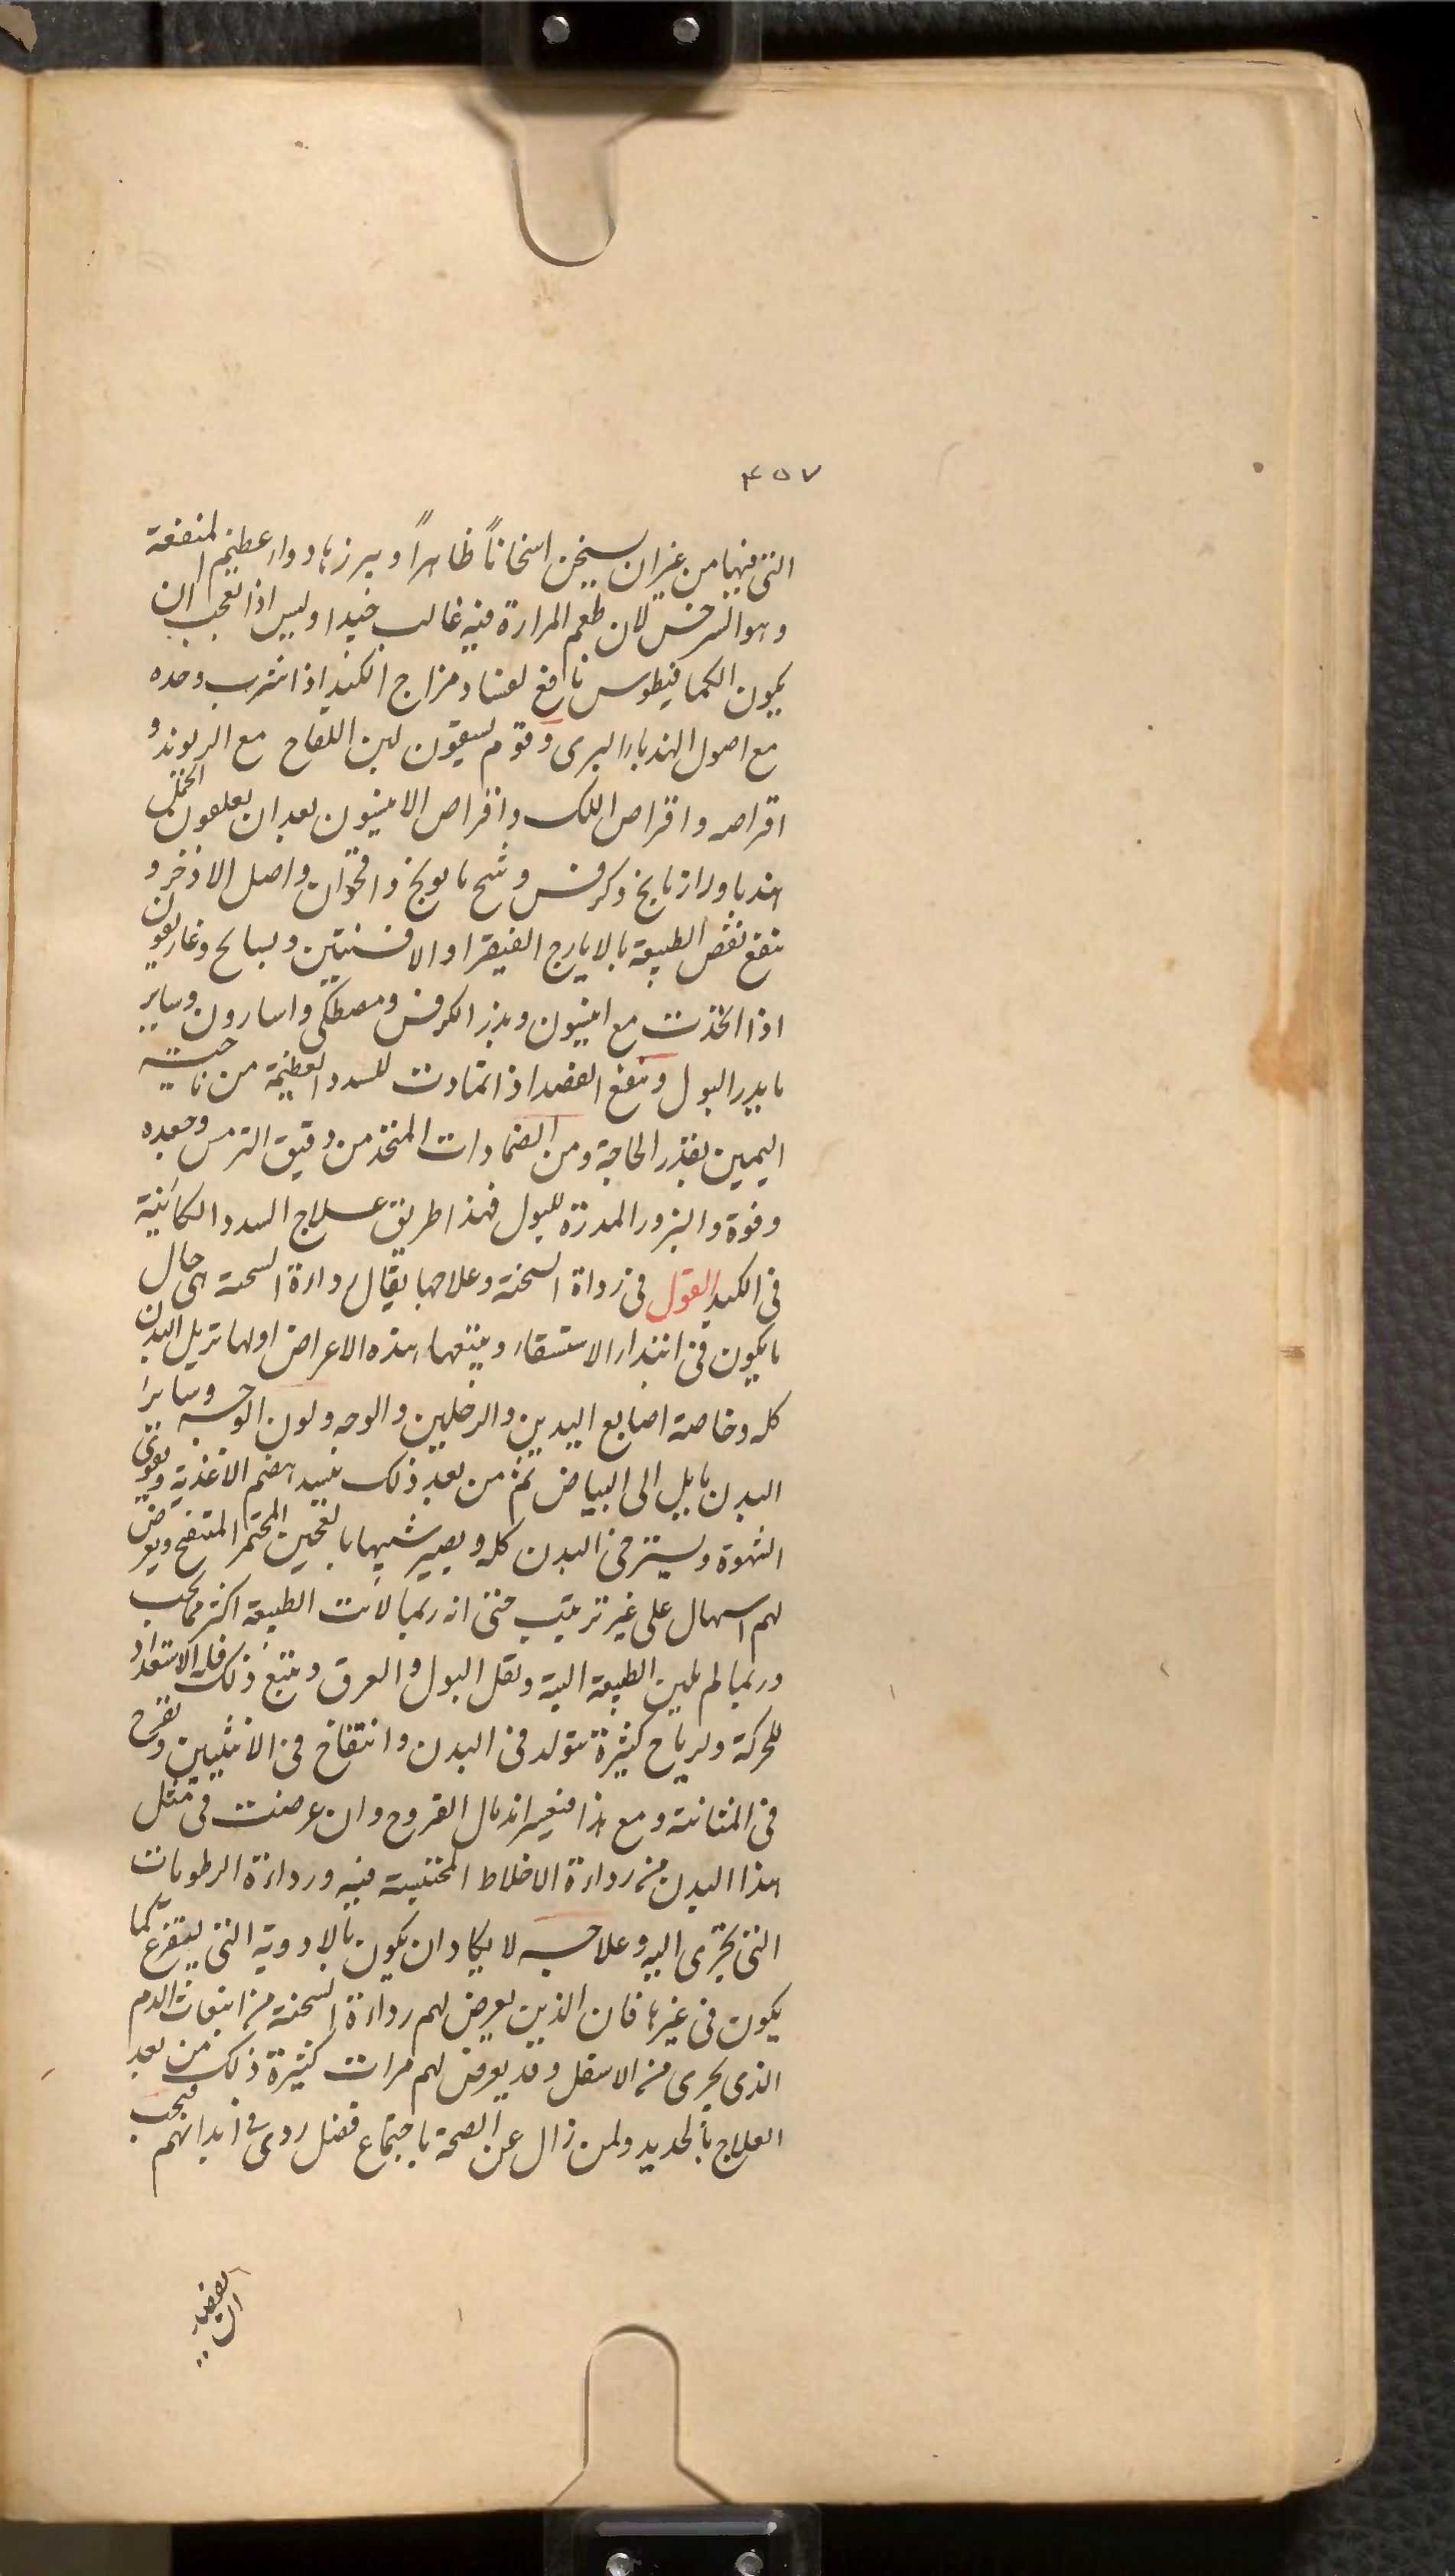 ٤٥٧
التى فيها من غيران يسخن اسخاناً ظاهراً و بهذا دواء عظيم المنفعة
وهو السرخس لان طعم المرارة فيه غالب جيدا وليس اذا تعجب ان
يكون الكمافيطوس نافع لفساد مزاج الكبد اذا شرب وحده
مع اصول الهندباء البرى وقوم يسقون لبن اللقاح مع الريوند و
اقراصه واقراص اللك واقراص الانيسون بعد ان يعلفون
هندبا ورازيانج وكرفس وشيح بابونج واقحوان واصل الاذخر و
ينفع نفض الطبيعة بالايارج الفيقرا او الافسنتين وبسبايج وغاريقون
اذا اتخذت مع انيسون وبذر الكرفس ومصطكى واسارون وساير
ما يدر البول وينفع الفصد اذا تمادت للسدد العظيمة من ناحية
اليمين بقدر الحاجة ومن الضمادات المتخذ من دقيق الترمس وجعده
وفوة والبزور المدرة للبول فهذا طريق علاج السدد الكائنية
فى الكبد القول فى رداة السحنة وعلاجها يقال رداءة السحنة اى حال
ما يكون فى ابتداء الاستسقاء ويتبعها هذه الاعراض اولها تربل البدن
كله وخاصة اصابع اليدين والرجلين والوجه ولون الوجه وسائر
البدن مايل الى البياض ثم من بعد ذلك يفسد هضم الاغذية ويقوى
الشهوة ويسترخى البدن كله ويصير شبيها بالعجين المختمر المنتفخ ويعرض
لهم اسهال على غير ترتيب حتى انه ربما لانت الطبيعة اكثر مما يجب
وربما لم يلين الطبيعة البتة ويقل البول والعرق ويتبع ذلك قلة الاستعداد
للحركة ورياح كثيرة تتولد فى البدن وانتفاخ فى الانثيين وتقرح
فى المثانة ومع هذا فيعسر اندمال القروح وان عرضت فى مثل
هذا البدن من رداءة الاخلاط المحتبسة فيه ورداءة الرطوبات
التى تجرى اليه وعلاجه لا يكاد ان يكون بالادوية التى يستفرغ كما
يكون فى غيرها فان الذين يعرض لهم رداءة السحنة من انبعاث الدم
الذى يجرى من الاسفل وقد يعرض لهم مرات كثيرة ذلك من بعد
العلاج بالحديد ولمن زال عن الصحة باجتماع فضل ردى فى ابدانهم فيجب